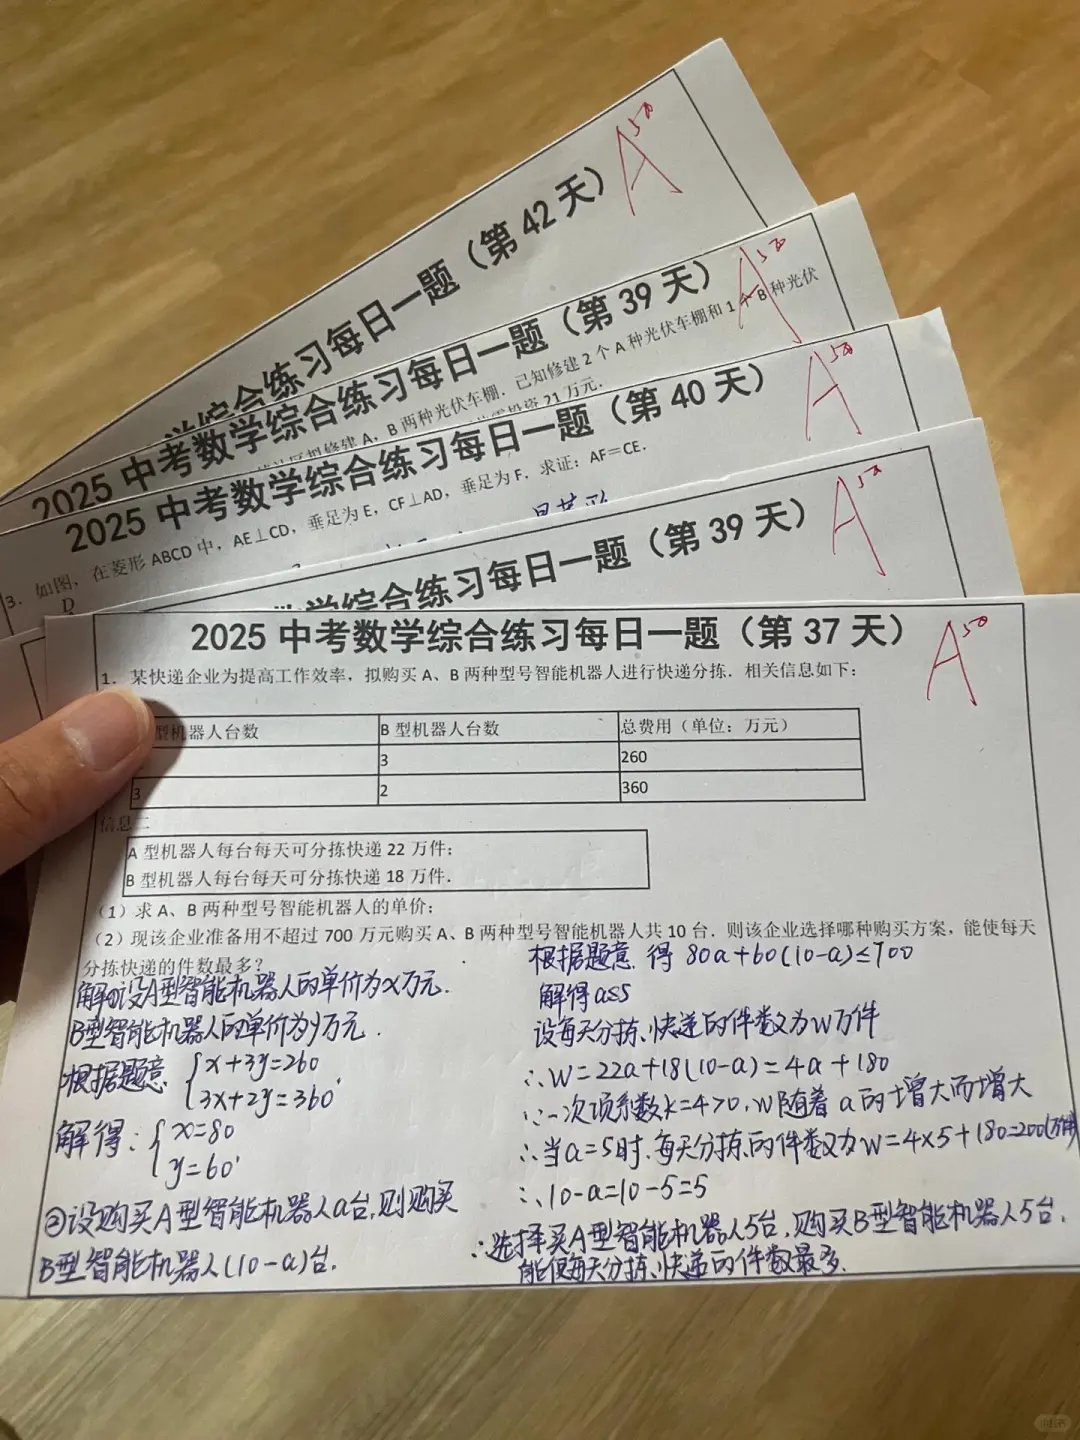 综合练习每日一题（第 42 天）
A
50
2025 中考数学综合练习每日一题（第 39 天）
A
50
拟修建 A，B 两种光伏车棚．已知修建 2 个 A 种光伏车棚和 1 个 B 种光伏
投资 21 万元．
2025 中考数学综合练习每日一题（第 40 天）
A
50
3．如图，在菱形 ABCD 中，AE⊥CD，垂足为 E，CF⊥AD，垂足为 F．求证：AF＝CE．
D
学综合练习每日一题（第 39 天）
A
50
2025 中考数学综合练习每日一题（第 37 天）
A
50
1．某快递企业为提高工作效率，拟购买 A、B 两种型号智能机器人进行快递分拣．相关信息如下：
型机器人台数 B 型机器人台数 总费用（单位：万元）
3 260
3 2 360
信息二
A 型机器人每台每天可分拣快递 22 万件；
B 型机器人每台每天可分拣快递 18 万件．
（1）求 A、B 两种型号智能机器人的单价；
（2）现该企业准备用不超过 700 万元购买 A、B 两种型号智能机器人共 10 台．则该企业选择哪种购买方案，能使每天
分拣快递的件数最多？
解①设A型智能机器人的单价为x万元.
B型智能机器人的单价为y万元.
根据题意 {x+3y=260
3x+2y=360
解得：{x=80
y=60
②设购买A型智能机器人a台,则购买
B型智能机器人(10-a)台.
根据题意 得 80a+60(10-a)≤700
解得a≤5
设每天分拣快递的件数为w万件
∴w=22a+18(10-a)=4a+180
∵一次项系数k=4>0,w随着a的增大而增大
∴当a=5时.每天分拣的件数为w=4×5+180=200(万件)
∴10-a=10-5=5
∴选择买A型智能机器人5台,购买B型智能机器人5台.
能使每天分拣快递的件数最多.